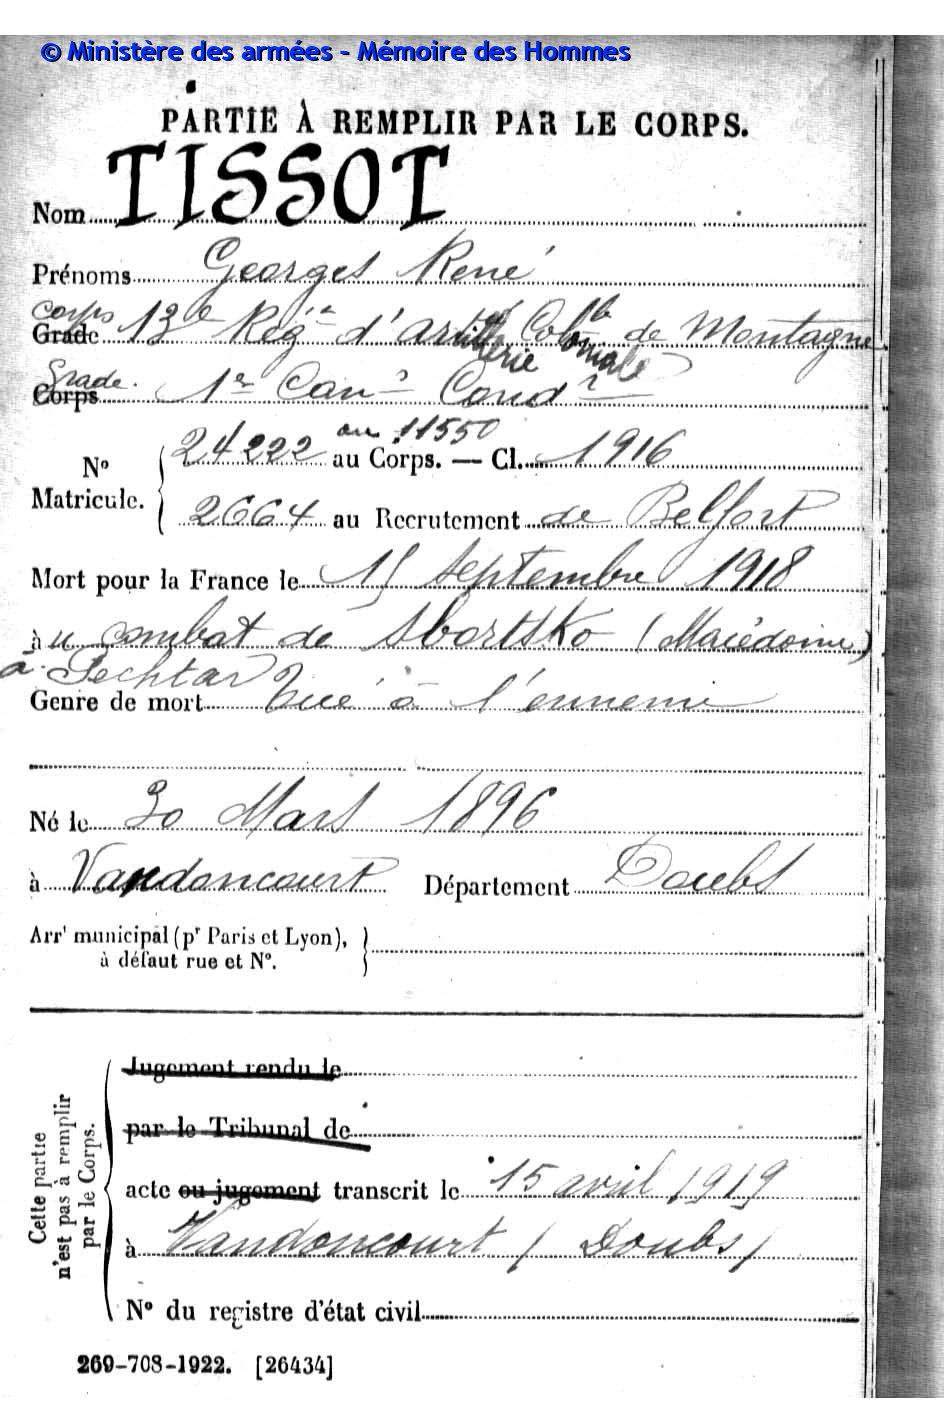 © Ministère des armées - Mémoire des Hommes
PARTIE À REMPLIR PAR LE CORPS.
Nom TISSOT
Prénoms Georges René
corps
Grade 13e Régt d'Artillerie Coloniale de Montagne
Grade.
Corps 1er Canr Condr
No Matricule. 24222 ou 11550 au Corps. — Cl. 1916
2664 au Recrutement de Belfort
Mort pour la France le 15 Septembre 1918
au combat de Sbortsko (Macédoine)
à Pechtar
Genre de mort Tué à l'ennemi
Né le 30 Mars 1896
à Vandoncourt Département Doubs
Arrt municipal (pr Paris et Lyon),
à défaut rue et No.
Cette partie n'est pas à remplir par le Corps.
Jugement rendu le
par le Tribunal de
acte ou jugement transcrit le 15 avril 1919
à Vandoncourt (Doubs)
No du registre d'état civil
269-708-1922. [26434]